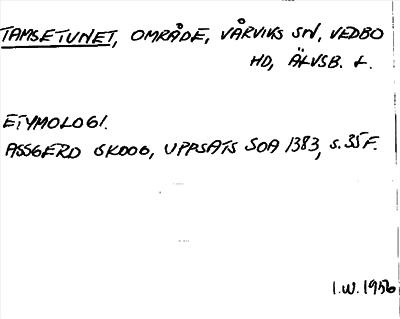 TAMSETUNET, OMRÅDE, VÅRVIKS SN, VEDBO
HD, ÄLVSB. L.
ETYMOLOGI.
ASSGERD SKOOG, UPPSATS SOA 1383, s. 35 F.
I.W. 1956